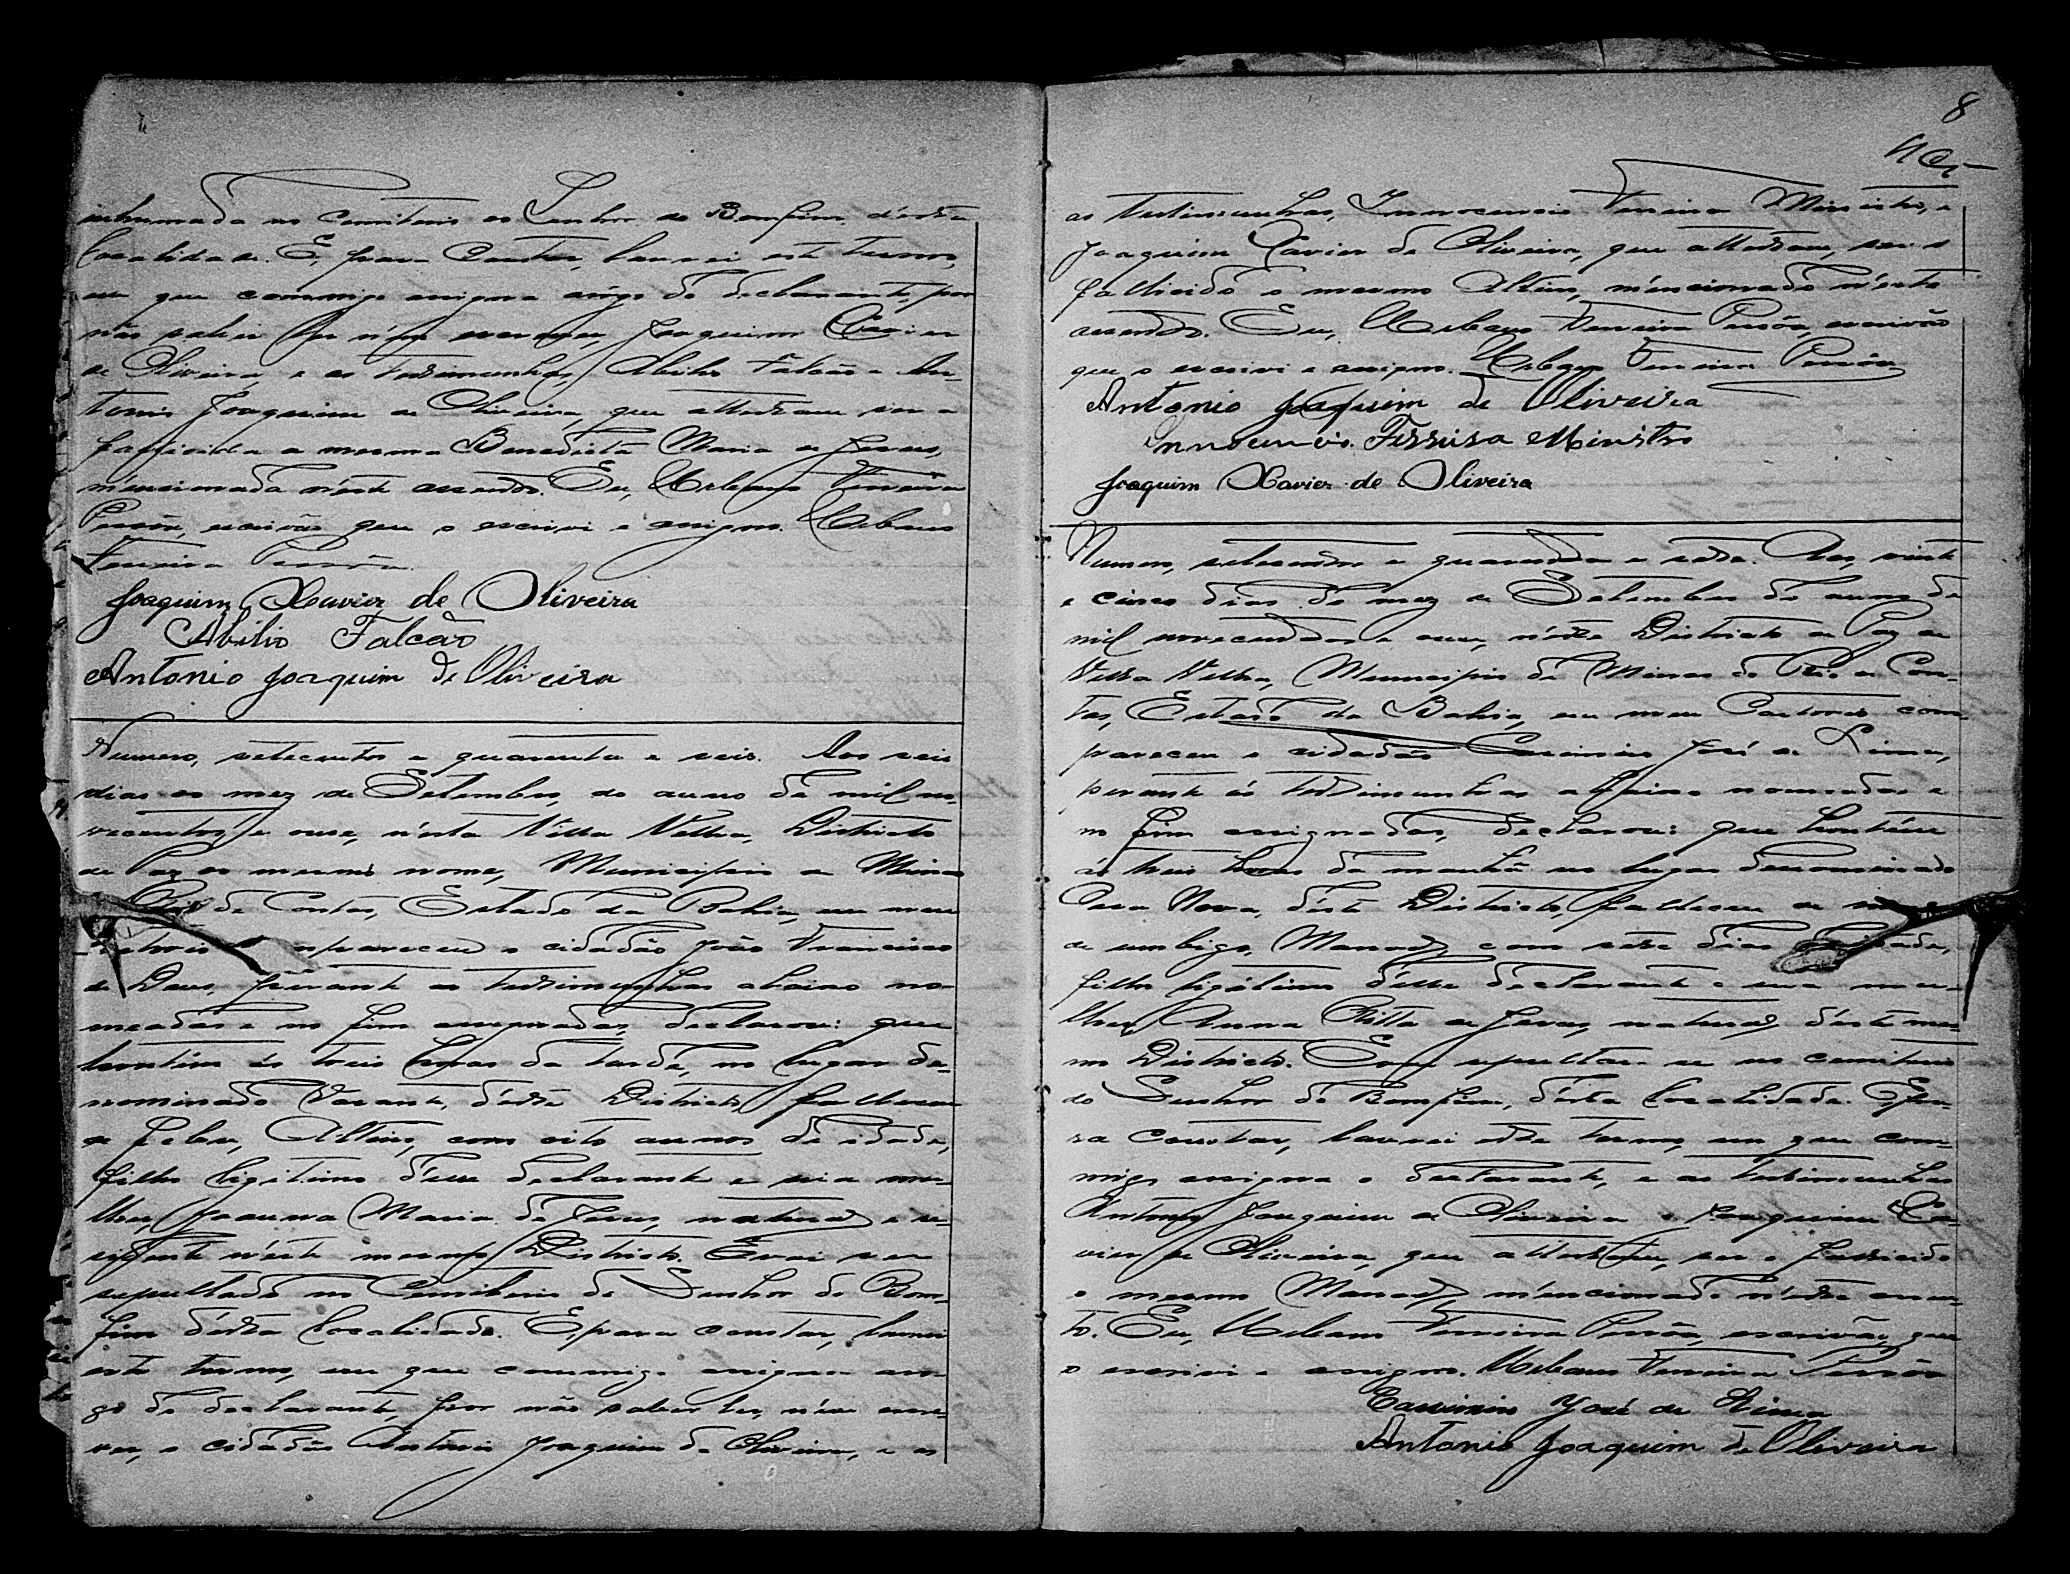 inhumada no Cemiterio do Senhor do Bomfim d'esta
localidade. E, para Constar, lavrei este termo,
em que commigo assigna arôgo do declarante, por
não saber ler n'em escrever, Joaquim Xavier
de Oliveira, e as testimunhas, Abilio Falcão e An-
tonio Joaquim de Oliveira, que attestam ser a
fallicida a mesma Benedicta Maria de Jesus,
mencionada n'este assento. Eu, Urbano Ferreira
Pessôa, escrivão que o escrivi e assigno. Urbano
Ferreira Pessôa.
Joaquim Xavier de Oliveira
Abilio Falcão
Antonio Joaquim de Oliveira
Numero, setecentos e quarenta e seis. Aos seis
dias do mez de Setembro, do anno de mil no-
vecentos e onze, n'esta Villa Velha, Districto
de Paz do mesmo nome, Municipio de Minas
Rio de Contas, Estado da Bahia, em meu
Cartorio compareceu o cidadão João Francisco
de Deus, perante as testimunhas abaixo no-
meadas e no fim assignadas, declarou: que
hontem ás treis horas da tarde, no lugar de-
nominado Vasante, d'este Districto, falleceu
de febre, Altino, com oito annos de idade,
filho legitimo d'esse declarante e sua mu-
lher, Joanna Maria de Jesus, natural e re-
sidente n'este mesmo Districto. E vai ser
sepultado no Cemiterio do Senhor do Bom-
fim d'esta localidade. E, para constar, lavrei
este termo, em que commigo assigna aro-
go do declarante, por não saber ler, n'em escre-
ver, o cidadão Antonio Joaquim de Oliveira, e as
8
as testimunhas, Innocencio Ferreira Ministro, e
Joaquim Xavier de Oliveira, que attestam, ser o
fallicido o mesmo Altino, mencionado n'este
assento. Eu, Urbano Ferreira Pessôa, escrivão
que o escrivi e assigno. Urbano Ferreira Pessôa
Antonio Joaquim de Oliveira
Innocencio Ferreira Ministro
Joaquim Xavier de Oliveira
Numero, setecentos e quarenta e sete. Aos, vinte
e cinco dias do mez de Setembro do anno de
mil novecentos e onze, n'este Districto de Paz de
Villa Velha, Municipio de Minas do Rio de Con-
tas, Estado da Bahia, em meu Cartorio com-
pareceu o cidadão Cassimiro José de Lima,
perante ás testimunhas abaixo nomeadas e
no fim assignadas, declarou: que hontém
ás treis horas da manhã no lugar denominado
Casa Nova, d'este Districto, falleceu de
de umbigo, Manoel, com sete dias de idade,
filho legitimo d'esse declarante e sua mu-
lher, Anna Ritta de Jesus, natural d'este mes-
mo Districto. E vai sepultar-se no cemiterio
do Senhor do Bomfim, d'esta localidade. E, pa-
ra constar, lavrei este termo, em que com-
migo assigna o declarante, e as testimunhas
Antonio Joaquim de Oliveira e Joaquim Xa-
vier de Oliveira, que attestam, ser o fallicido
o mesmo Manoel, mencionado n'este assen-
to. Eu, Urbano Ferreira Pessôa, escrivão, que
o escrivi e assigno. Urbano Ferreira Pessôa
Cassimiro José de Lima
Antonio Joaquim de Oliveira